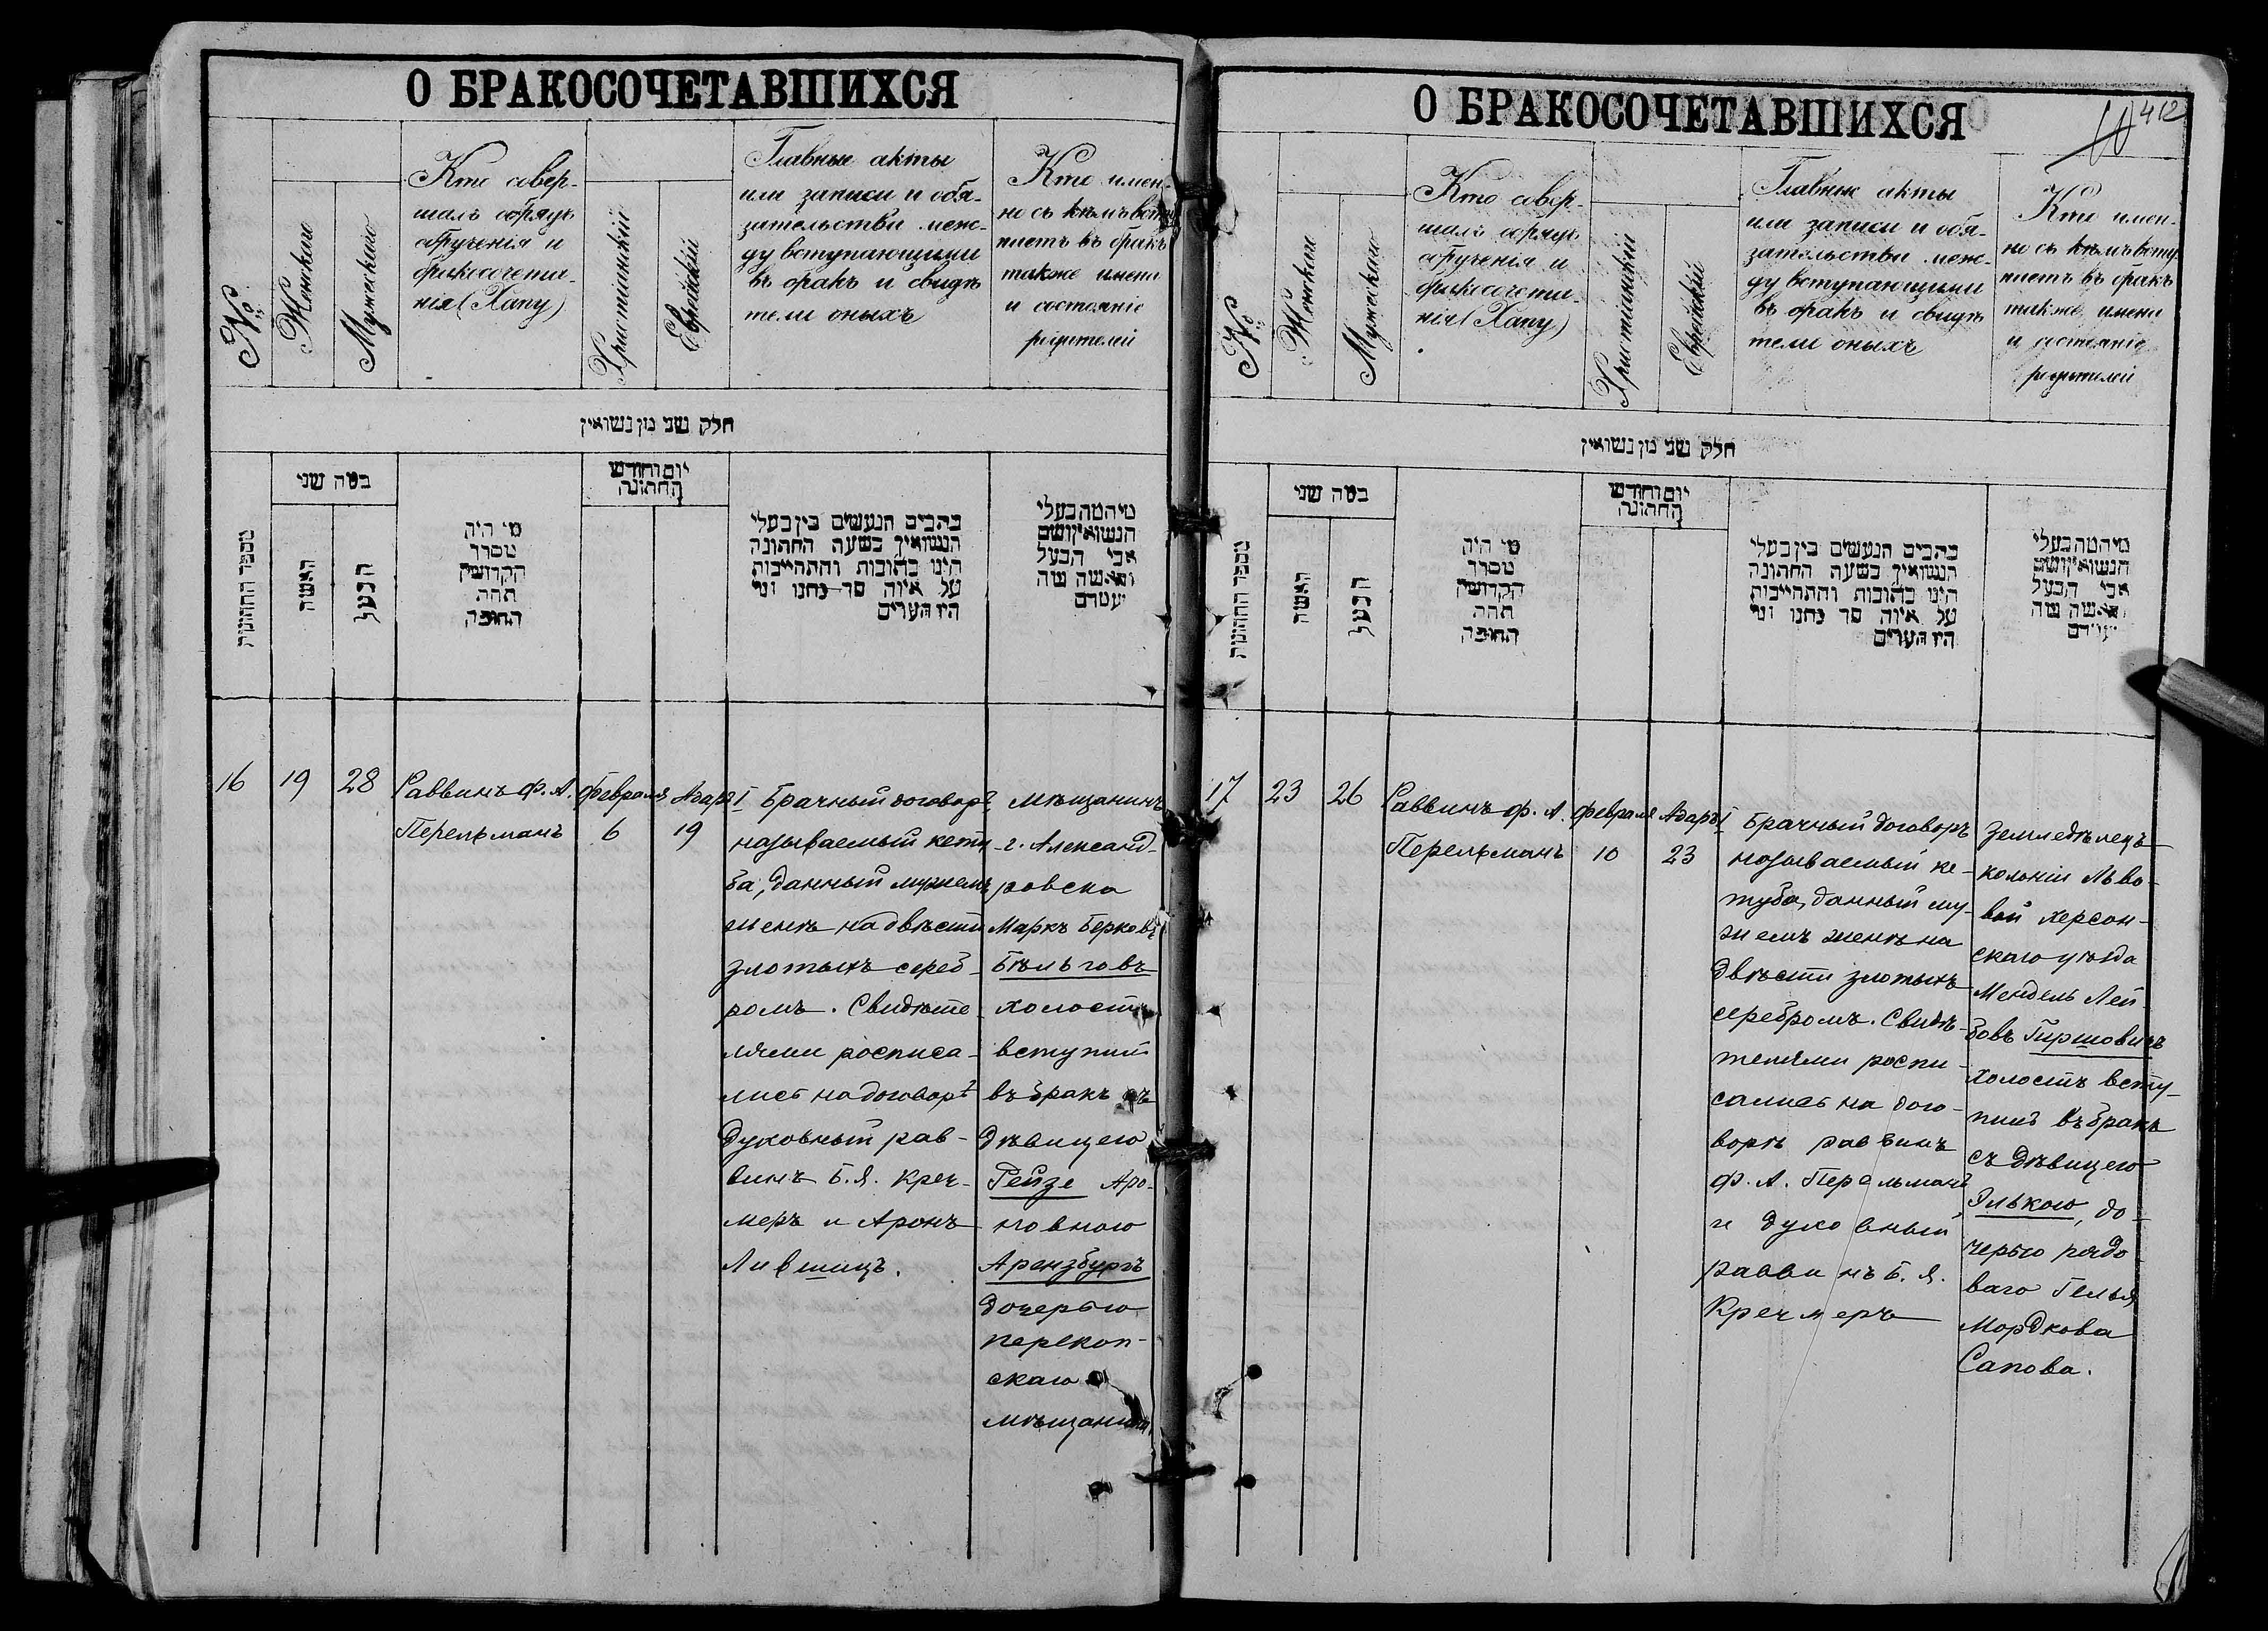 О БРАКОСОЧЕТАВШИХСЯ
№
Женскаго
Мужескаго
Кто совер-
шалъ обрядъ
обрученія и
бракосочета-
нія (Хапу)
Христіанскій
Еврейскій
Главные акты
или записи и обя-
зательства меж-
ду вступающими
въ бракъ и свидѣ
тели оныхъ
Кто имен-
но съ кѣмъ всту
паетъ въ бракъ
также имена
и состояніе
родителей
חלק שני מן נשואין
מספר החתונות
כמה שני
האשה
הבעל
מי היה
מסדר
הקדושין
תחת
החופה
יום וחודש
החתונה
כתבים הנעשים בין בעלי
הנשואין בשעת החתונה
היינו כתובות והתחייבות
על איזה סך נתנו ומי
היו העדים
מי המה בעלי
הנשואין ושם
אבי הבעל
והאשה מה
מעמדם
16
19
28
Раввинъ Ф. А.
Перельманъ
Февраля
6
Адаръ I
19
Брачный договоръ
называемый кету
ба, данный мужемъ
женѣ на двѣсти
злотыхъ сереб-
ромъ. Свидѣте-
лями росписа-
лись на договорѣ
духовный рав-
винъ Б. Я. Креч-
меръ и Аронъ
Лившицъ.
Мѣщанинъ
г. Александ-
ровска
Маркъ Берковъ
Бѣльговъ
холостъ
вступилъ
въ бракъ съ
дѣвицею
Рейзе Аро-
новною
Арензбургъ
дочерью
перекоп-
скаго
мѣщанина
О БРАКОСОЧЕТАВШИХСЯ
412
№
Женскаго
Мужескаго
Кто совер-
шалъ обрядъ
обрученія и
бракосочета-
нія (Хапу)
Христіанскій
Еврейскій
Главные акты
или записи и обя-
зательства меж-
ду вступающими
въ бракъ и свидѣ
тели оныхъ
Кто имен-
но съ кѣмъ всту
паетъ въ бракъ
также имена
и состояніе
родителей
חלק שני מן נשואין
מספר החתונות
כמה שני
האשה
הבעל
מי היה
מסדר
הקדושין
תחת
החופה
יום וחודש
החתונה
כתבים הנעשים בין בעלי
הנשואין בשעת החתונה
היינו כתובות והתחייבות
על איזה סך נתנו ומי
היו העדים
מי המה בעלי
הנשואין ושם
אבי הבעל
והאשה מה
מעמדם
17
23
26
Раввинъ Ф. А.
Перельманъ
Февраля
10
Адаръ I
23
Брачный договоръ
называемый ке-
туба, данный му-
жемъ женѣ на
двѣсти злотыхъ
серебромъ. Свидѣ-
телями роспи-
сались на дого-
ворѣ раввинъ
Ф. А. Перельманъ
и духовный
раввинъ Б. Я.
Кречмеръ
Земледѣлецъ
колоніи Льво-
вой Херсон-
скаго уѣзда
Мендель Лей-
бовъ Гиршовичъ
холостъ всту-
пилъ въ бракъ
съ дѣвицею
Элькою, до-
черью рядо
ваго Гелья
Мордкова
Сапова.